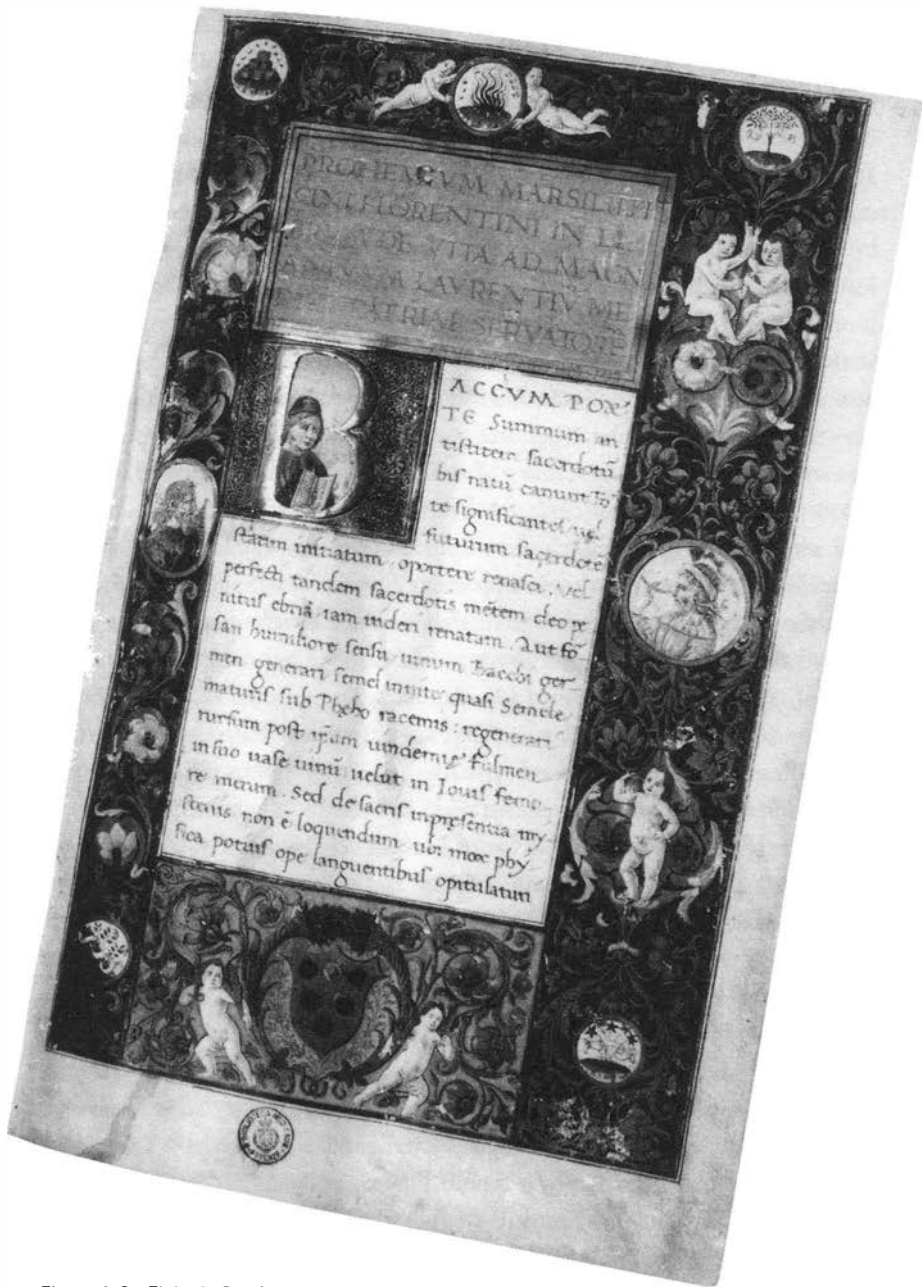 PROHEMIVM MARSILII FI
CINI FLORENTINI IN LI
DE VITA AD MAGN
LAVRENTIV̄ ME
PATRIAE SERVATORĒ
BACCVM POE
TE Summum an
tistitem sacerdotū
bis natū canunt Fo
te significantes vel
futurum sacerdotē
statim initiatum oportere renasci. vel
perfecti tandem sacerdotis mētem deo pe
nitus ebriā iam uideri renatam. Aut fo
san humiliore sensu uinum Bacchi ger
men generari semel in uite quasi Semele
maturis sub Phebo racemis: regenerari
rursum post ipsam uindemie fulmen
in suo uase uinū uelut in Iouis femo
re merum. Sed de sacris in presentia my
steriis non ē loquendum ubi mox phy
sica potius ope languentibus opitulaturi